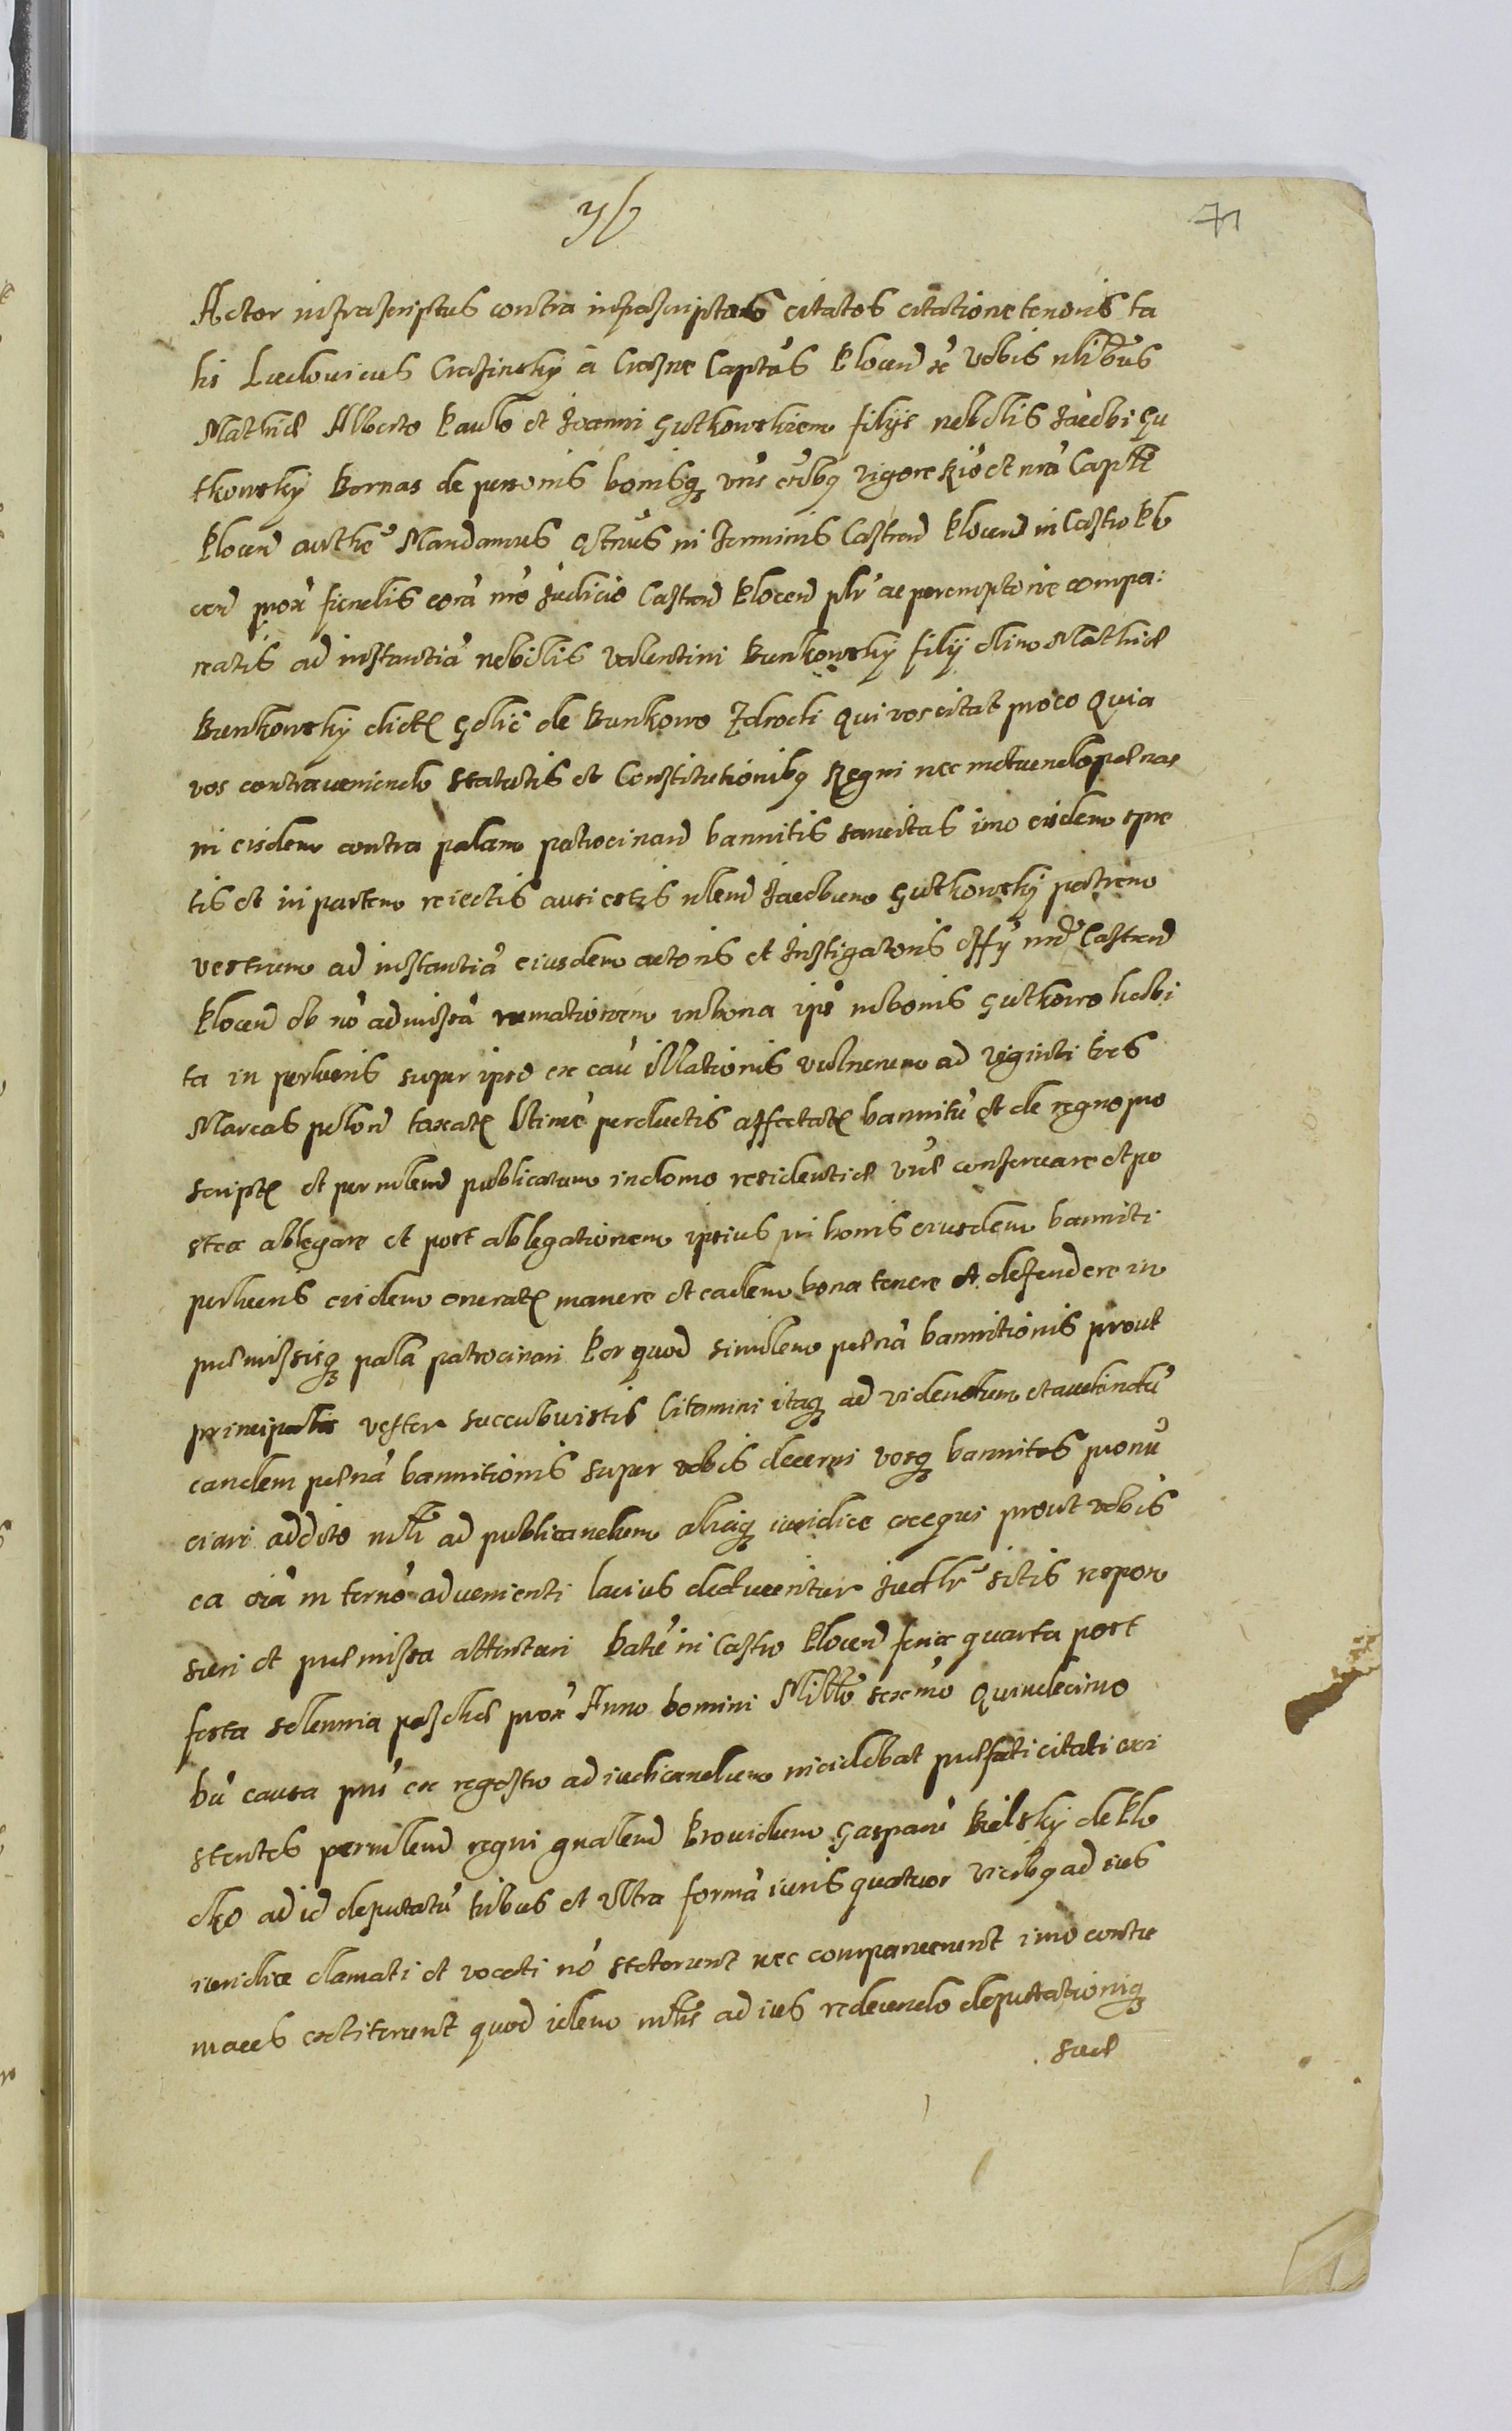 71
Actor infrascriptus contra infrascriptos citatos citatione tenoris ta
lis Ludovicus Crasinsky a Crasne Captus Plocen vobis nlibus
Mathiæ Alberto Paulo et Joanni Gutkowskiem filijs nobilis Jacobi Gu
tkowsky Bornas de personis bonisq vris oibq vigore Rio et nra Capli
Plocen authe Mandamus qtnus in Terminis Castren Plocen in Castro Plo
cen prox fiendis cora nro Judicio Castren Plocen plr ac peremptorie compa:
reatis ad instantia nobilis Valentini Bunkowsky filij olim Mathiæ
Bunkowsky dicti de Bunkowo Zdrodi Qui vos citat pro eo Quia
vos contraveniendo statutis et Constitutionibq Regni nec metuendo pœnas
in eisdem contra palam patrocinan bannitis sancitas imo eisdem spre
tis et in partem reiectis ausi estis nlem Jacobum Gutkowsky patrem
vestrum ad instantia eiusdem actoris et Instigatoris offy nri Castren
Plocen ob no admissa rumationem in bona ips in bonis Gutkowo habi
ta in perlucris super ipso ex cau illationis vulnerum ad viginti tres
Marcas polon taxat ltime perductis affectat bannitu et de regno pro
script et per mlem publicatum in domo residentiæ vræ conservare et po
stea ablegare et post ablegationem ipsius in bonis eiusdem banniti
perlucris eisdem onerat manere et eadem bona tenere et defendere in
præmissisq pala patrocinari Por quod similem pœna bannitionis prout
principalis vester succubuistis Citamini itaq ad videndum et audiendu
eandem pœna bannitionis super vobis decerni vosq bannitos pronu
ciari addito mli ad publicandum aliaq iuridice exequi prout vobis
ea oia in terno advenienti lacius deducentur Judlr sitis respon
suri et præmissa attentari Datu in Castro Plocen feria quarta post
festa solennia paschæ prox Anno Domini Millo sexmo Quindecimo
Du causa pns ex regestro ad iudicandum incidebat præfati citati exi
stentes per mlem regni gnalem Providum Gasparu Bielsky de Plo
cko ad id deputatu tribus et ultra forma iuris quatuor vicibq ad ius
iuridice clamati et vocati no steterunt nec comparuerunt imo contu
maces extiterunt quod idem mlis ad ius redeundo deputationisq
suæ